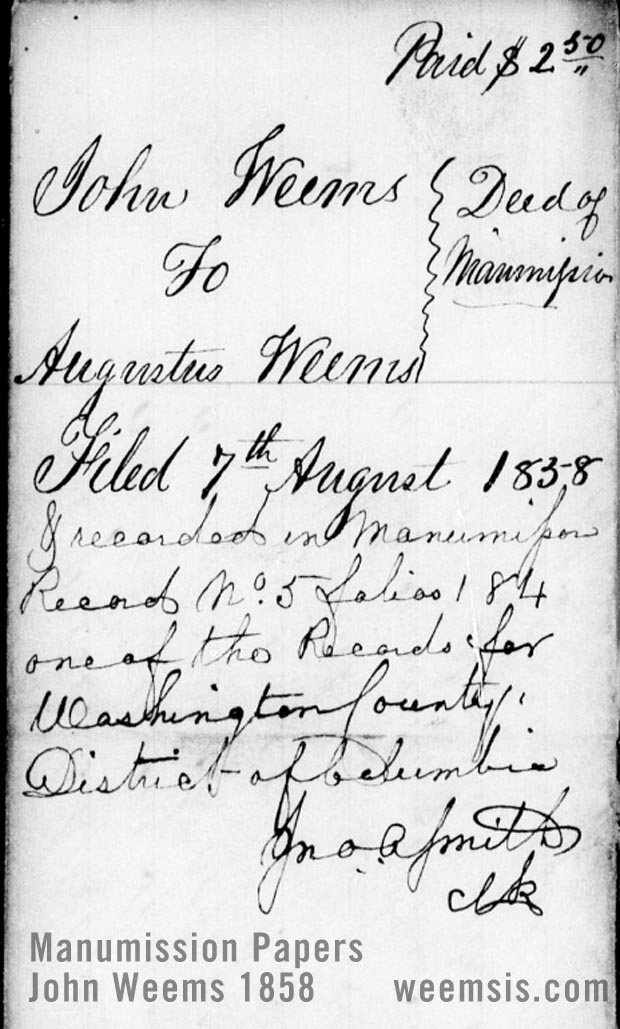 Paid $ 2 50
John Weems
Deed of
To
Manumission
Augustus Weems
Filed 7th August 1858
& recorded in Manumission
Record No. 5 folios 184
one of the Records for
Washington County,
District of Columbia
Jno. A Smith
clk
Manumission Papers
John Weems 1858
weemsis.com